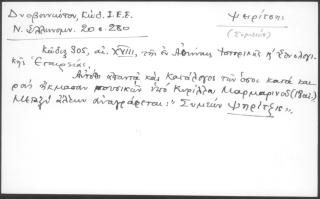 Δυοβουνιώτου, Κώδ. Ι.Ε.Ε.
Ν. Ελληνομν. 20 σ. 280
Ψειρίτσης
(Συμεών)
Κώδιξ 305, αἰ. XVIII, τῆς ἐν Ἀθήναις Ἱστορικῆς κ' Ἐθνολογι-
κῆς Ἑταιρείας.
Αὐτόθι ἀπαντᾷ καὶ Κατάλογος τῶν ὅσοι κατὰ και-
ροὺς ἤκμασαν μουσικῶν ὑπὸ Κυρίλλου Μαρμαρηνοῦ (18 αἰ.)
Μεταξὺ ἄλλων ἀναγράφεται: "Συμεὼν Ψηρίτζις".